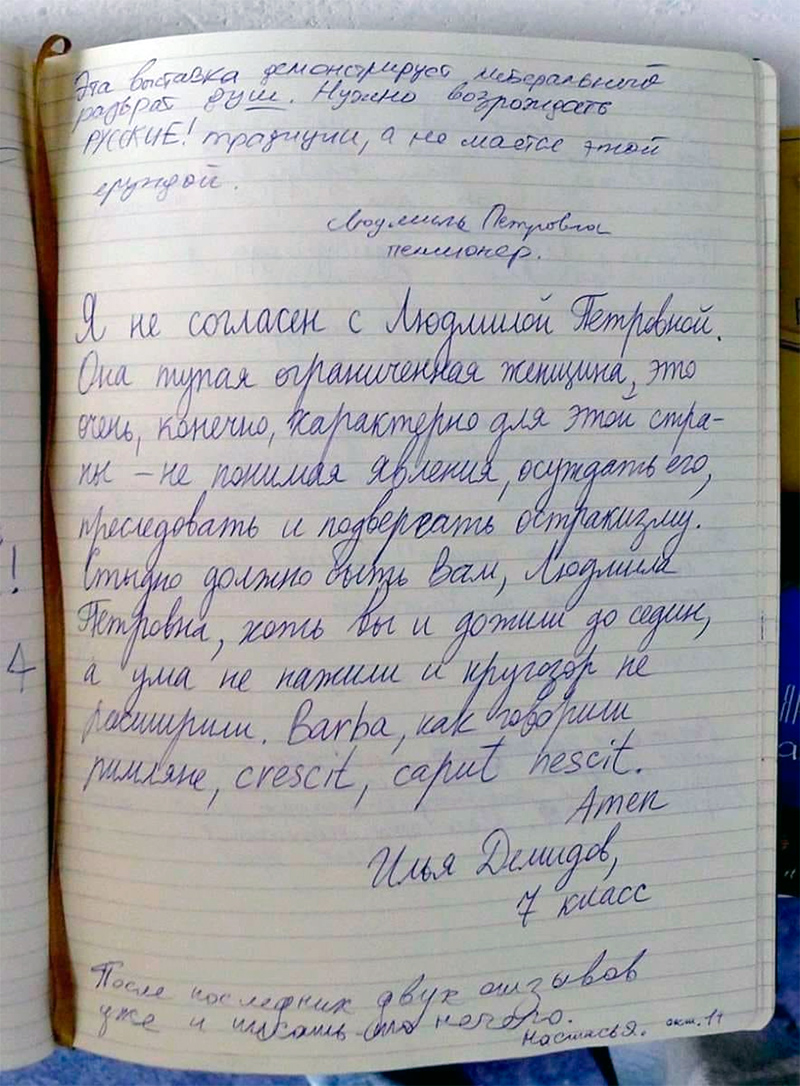 Эта выставка демонстрирует либеральный
разврат душ. Нужно возрождать
РУССКИЕ! традиции, а не маятся этой
ерундой.
Людмила Петровна
пенсионер.
Я не согласен с Людмилой Петровной.
Она тупая ограниченная женщина, это
очень, конечно, характерно для этой стра-
ны – не понимая явления, осуждать его,
преследовать и подвергать остракизму.
Стыдно должно быть Вам, Людмила
Петровна, хоть вы и дожили до седин,
а ума не нажили и кругозор не
расширили. Barba, как говорили
римляне, crescit, caput nescit.
Атеп
Илья Демидов,
7 класс
После последних двух отзывов
уже и писать-то нечего.
Настасья. окт. 17
!
4